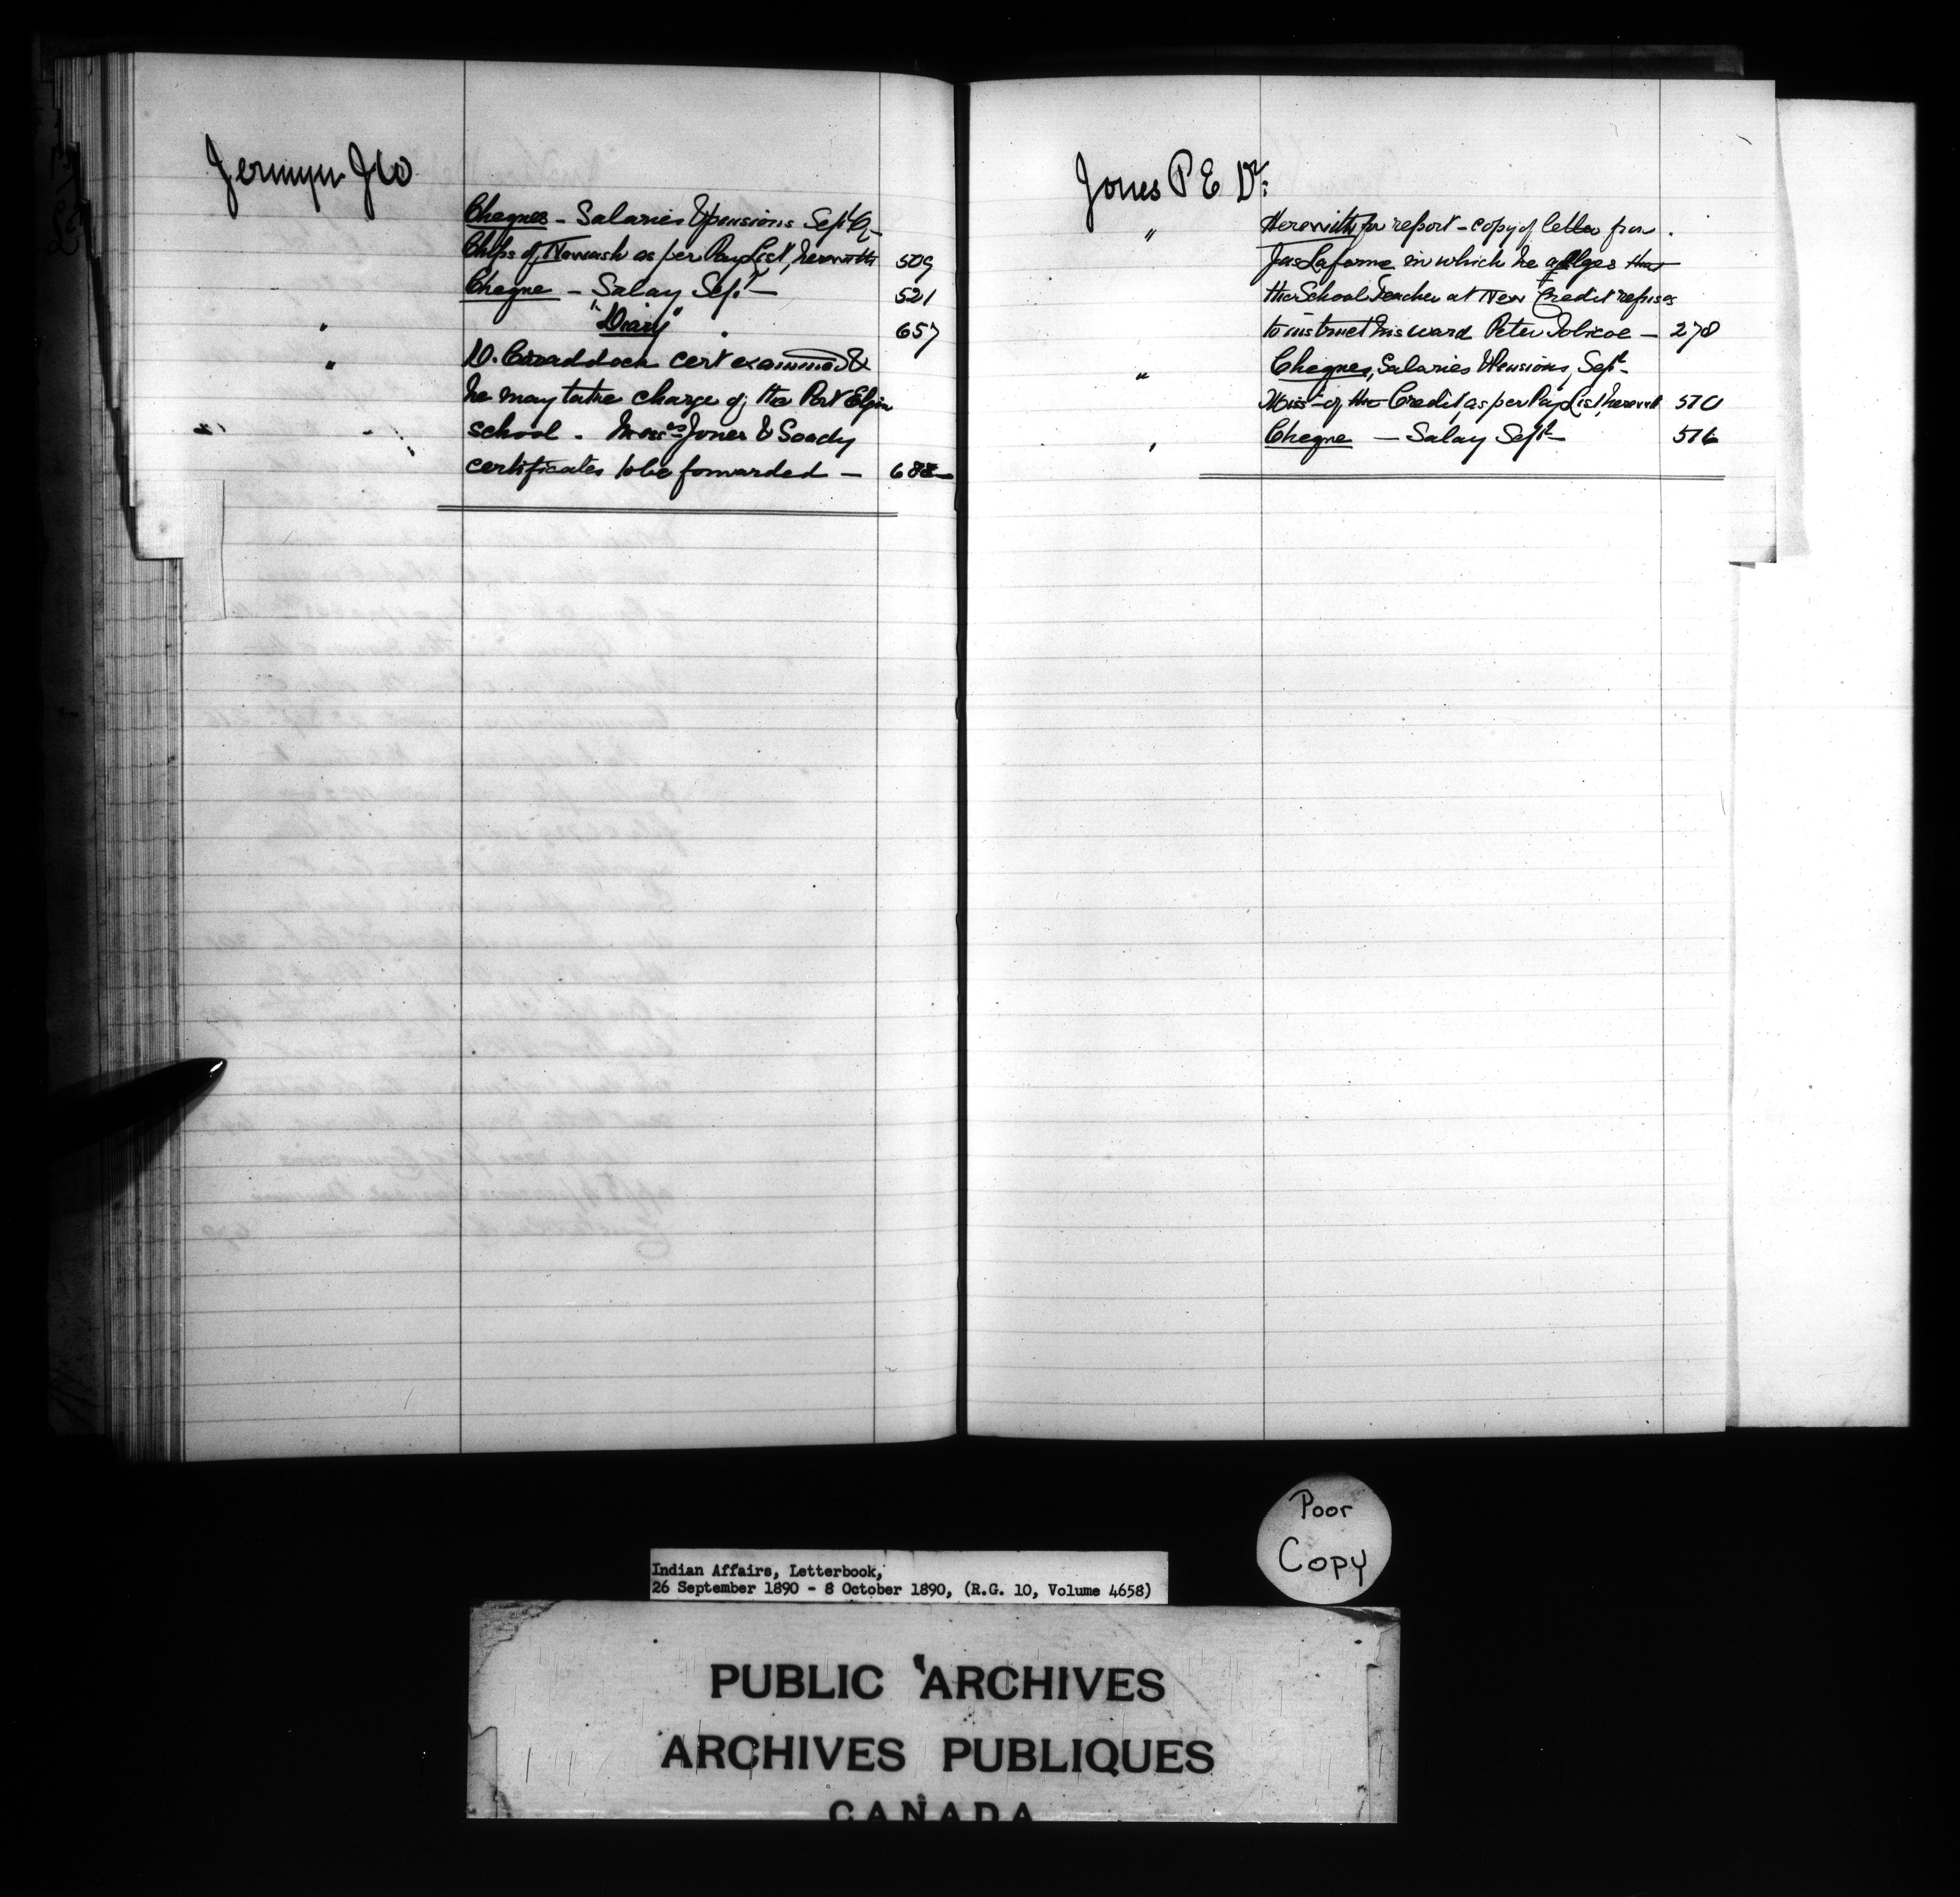 Jermyn J W
Cheques - Salaries & pensions Sept Qr
Chips of Nawash as per Pay List, herewith 509
Cheque - Salary Sept - 521
" "Diary" 657
" D. Craddock cert examined &
he may take charge of the Port Elgin
school. Jones & Scady
certificates to be forwarded - 688
Jones P E Dr:
" Herewith for report - copy of letter from
Jas Laforme in which he alleges that
the School Teacher at New Credit refuses
to instruct his ward Peter Tobicoe - 270
" Cheques, Salaries & Pensions, Sept -
Miss - of the Credit, as per Pay List, herewith 510
" Cheque - Salary Sept - 516
Poor
Copy
Indian Affairs, Letterbook,
26 September 1890 - 8 October 1890, (R.G. 10, Volume 4658)
PUBLIC ARCHIVES
ARCHIVES PUBLIQUES
CANADA